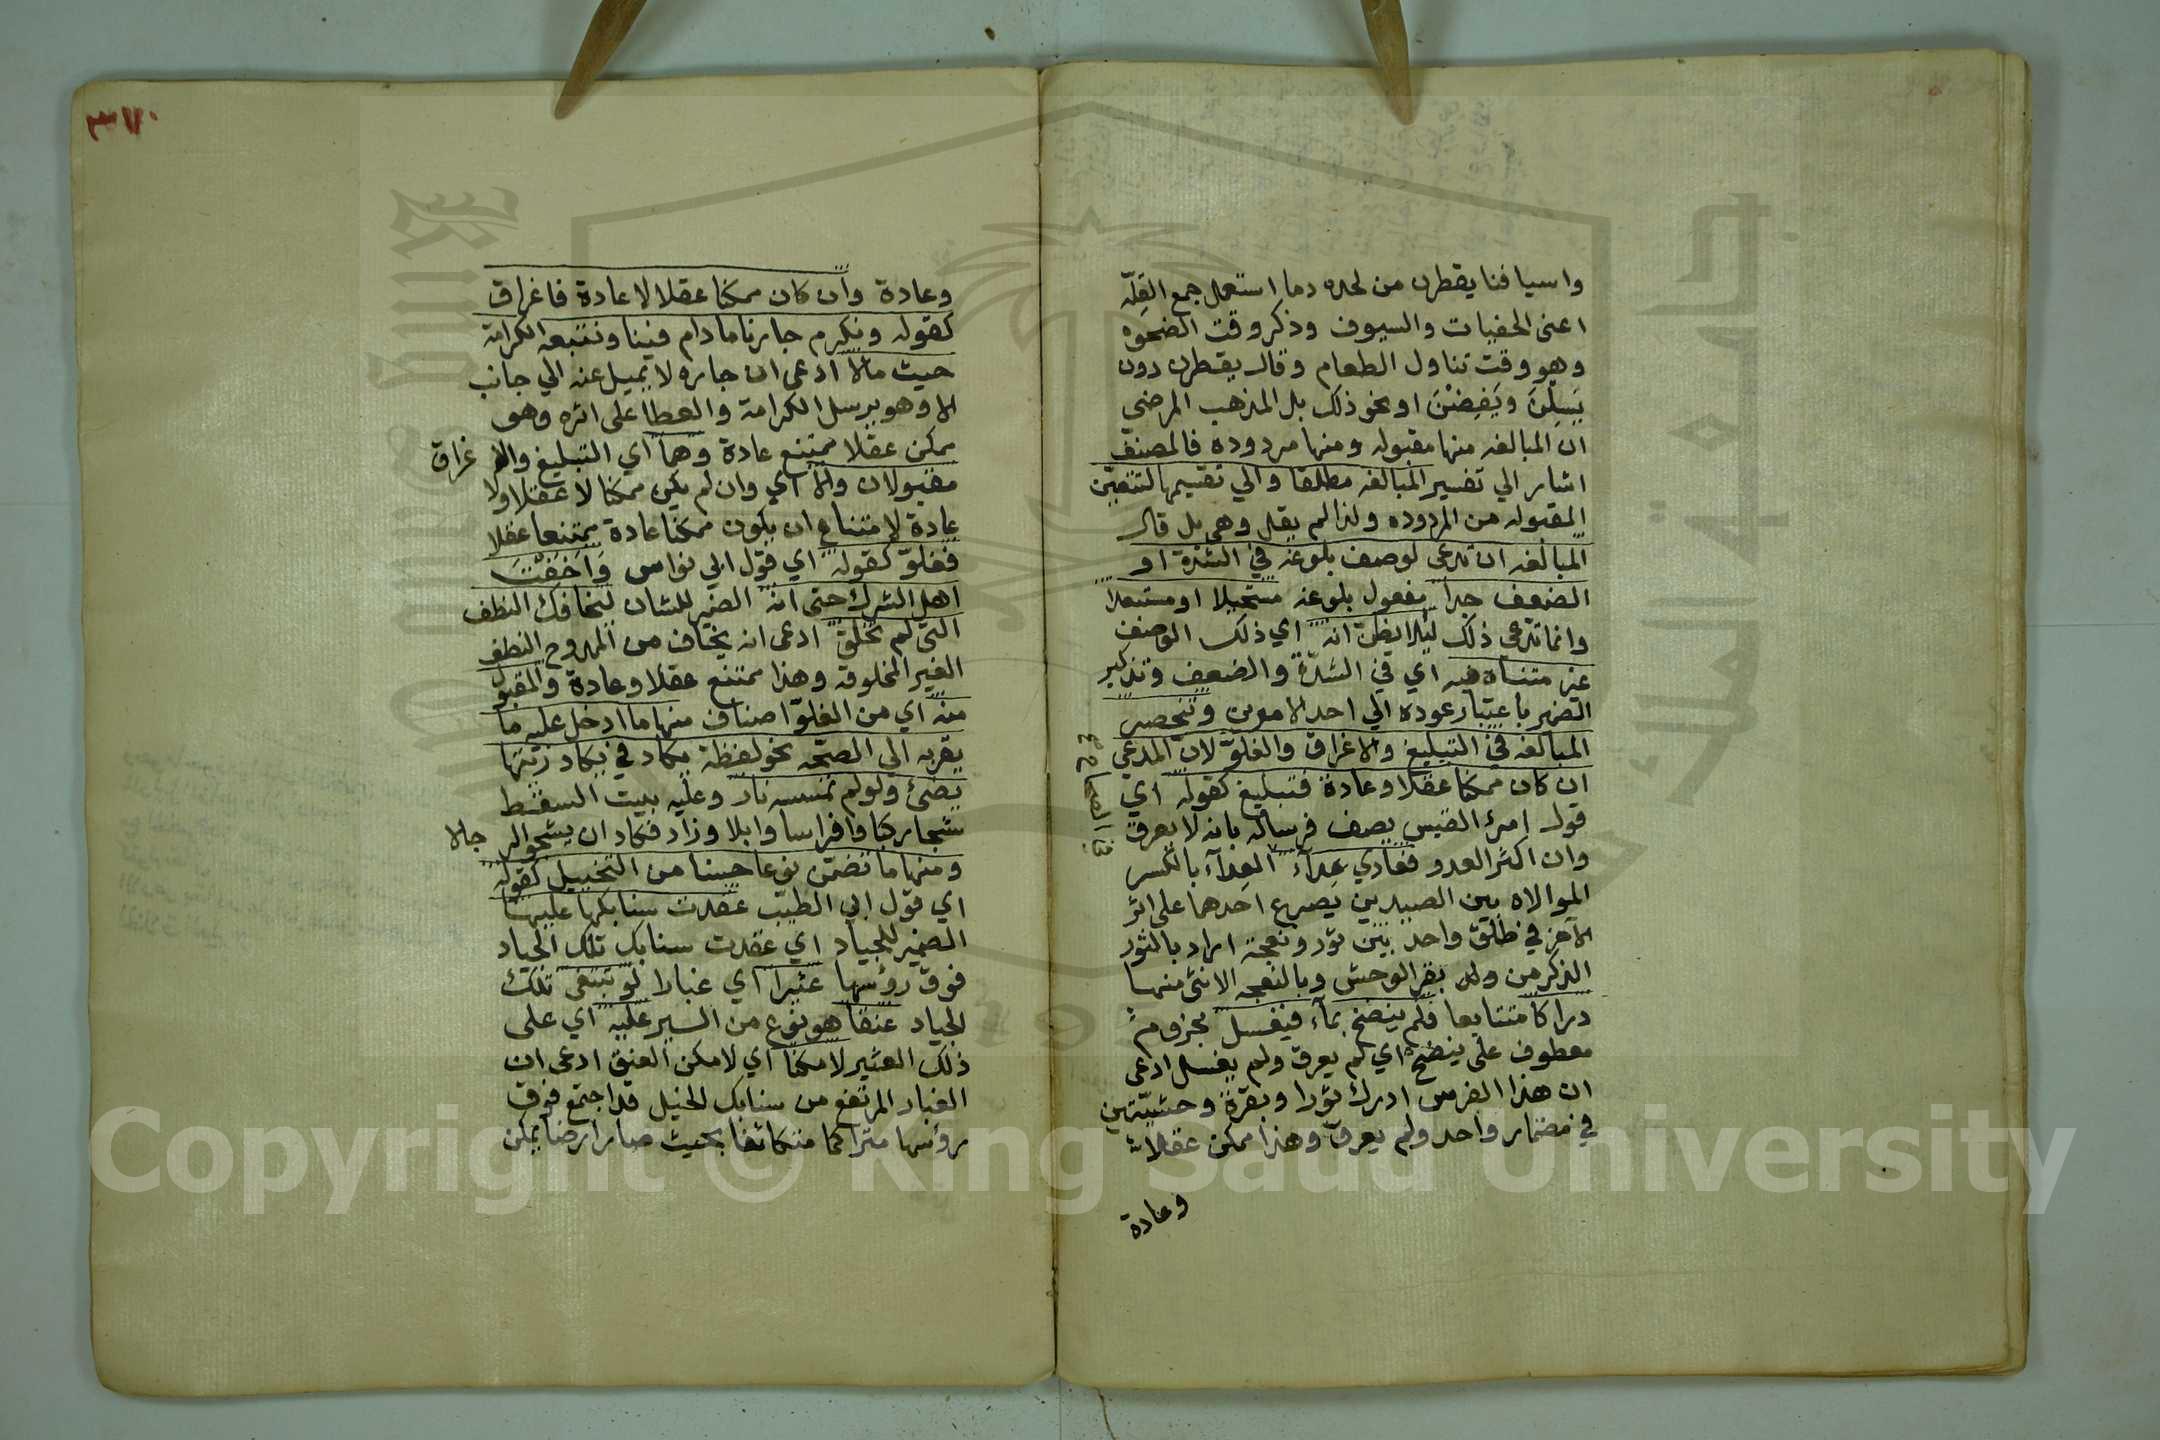 واسيافنا يقطرن من نجده دما استعمل جمع القلّة
اعنى الجفنات والسيوف وذكر وقت الضحوه
وهو وقت تناول الطعام وقال يقطرن دون
يَسِلْنَ ويَفِضْنَ او نحو ذلك بل المذهب المرضى
ان المبالغه منها مقبوله ومنها مردودة فالمصنف
اشار الي تفسير المبالغه مطلقا والي تقسيمها لتتعيّن
المقبوله من المردوده ولذا لم يقل وهي بل قال
المبالغه ان تدعى لوصف بلوغه في الشدّة او
الضعف حدا مفعول بلوغه مستحيلا او مستبعدا
وانما تدعى ذلك ليلا يظن انه اي ذلك الوصف
غير متناه فيه اي في الشدّة والضعف وتذكير
الضمير باعتبار عوده الي احد الامرين وتنحصر
المبالغه في التبليغ والاغراق والغلوّ لانّ المدعي
ان كان ممكنا عقلا وعادة فتبليغ كقوله اي
قول امرئ القيس يصف فرسا له بانه لا يعرق
وان اكثر العدو فعادي عِدآء العِدآء بالكسر
الموالاه بين الصيدين يصرع احدهما على اثر
الآخر في طلق واحد بين ثور ونعجة اراد بالثور
الذكر من ولد بقر الوحش وبالنعجه الانثى منها
دراكا متتابعا فلم ينضح بمآء فيغسل مجزوم
معطوف على ينضح اي لم يعرق ولم يغسل ادعى
ان هذا الفرس ادرك ثورا وبقرة وحشيّتين
في مضمار واحد ولم يعرق وهذا ممكن عقلا
وعادة
٣٧٠
وعادة وان كان ممكنا عقلا لا عادة فاغراق
كقوله ونكرم جارنا ما دام فينا ونتبعه الكرامة
حيث مالا ادعى ان جاره لا يميل عنه الي جانب
الا وهو يرسل الكرامة والعطا على اثره وهو
ممكن عقلا ممتنع عادة وهما اي التبليغ والاغراق
مقبولان والا اي وان لم يكن ممكنا لا عقلا ولا
عادة لامتناع ان يكون ممكنا عادة ممتنعا عقلا
فغلوّ كقوله اي قول ابي نواس وَاَخَفْتَ
اهل الشرك حتى انه الضمير للشان لتخافك النطف
التى لم تخلق ادعى انه يخاف من الممدوح النطف
الغير المخلوقه وهذا ممتنع عقلا وعادة والمقبول
منه اي من الغلوّ اصناف منها ما ادخل عليه ما
يقربه الي الصحّه نحو لفظة يكاد في يكاد زيتها
يضئ ولو لم تمسسه نار وعليه بيت السقط
شجا ركبا وافراسا وابلا وزاد فكاد ان يشجو الرحالا
ومنها ما تضمّن نوعا حسنا من التخييل كقوله
اي قول ابي الطيّب عقدت سنابكها عليها
الضمير للجياد اي عقدت سنابك تلك الجياد
فوق رؤسها عثيرا اي غبارا لو تبتغى تلك
الجياد عنقا هو نوع من السير عليه اي على
ذلك العثير لامكنا اي لامكن العنق ادعى ان
الغبار المرتفع من سنابك الخيل قد اجتمع فوق
رؤسها متراكما متكاثفا بحيث صار ارضا يمكن
Copyright © King Saud University